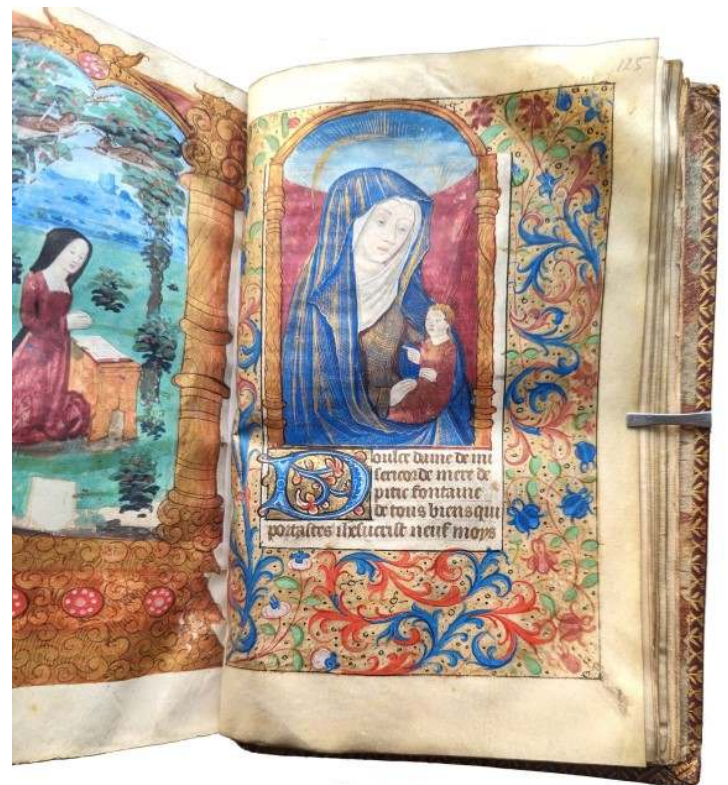 125
Doulce dame de mi
sericorde mere de
pitie fontaine
de tous biens qui
portastes ihesucrist neuf moys